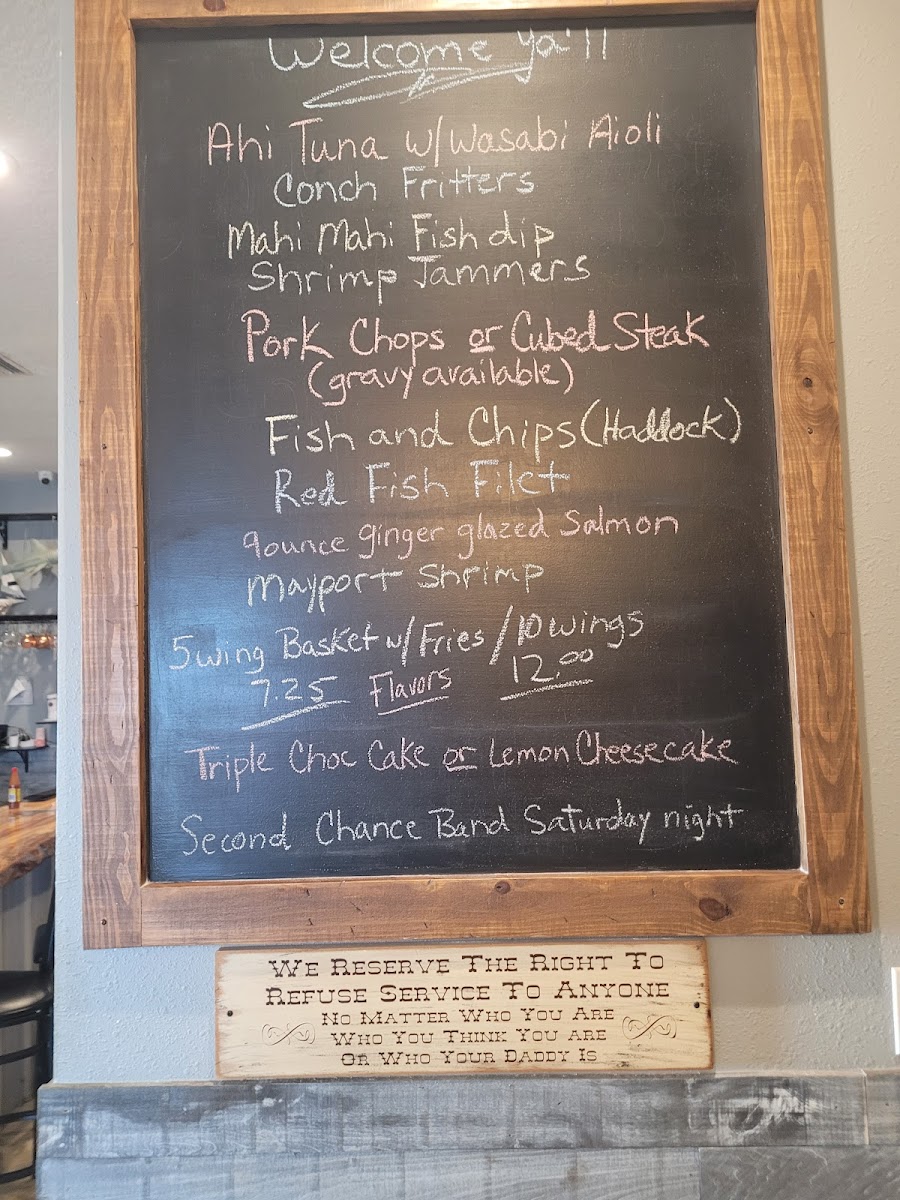 Welcome Ya'll
Ahi Tuna w/Wasabi Aioli
Conch Fritters
Mahi Mahi Fish dip
Shrimp Jammers
Pork Chops or Cubed Steak
(gravy available)
Fish and Chips (Haddock)
Red Fish Filet
9ounce ginger glazed Salmon
Mayport Shrimp
5wing Basket w/Fries / 10 wings
7.25 Flavors 12.00
Triple Choc Cake or Lemon Cheesecake
Second Chance Band Saturday night
WE RESERVE THE RIGHT TO
REFUSE SERVICE TO ANYONE
NO MATTER WHO YOU ARE
WHO YOU THINK YOU ARE
OR WHO YOUR DADDY IS